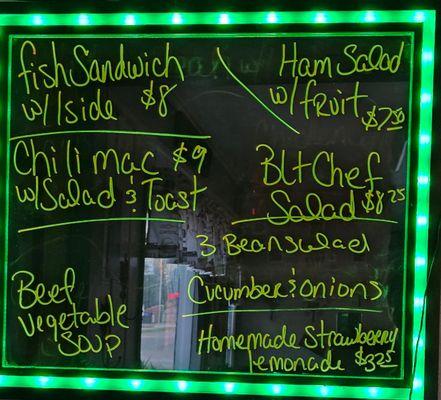 fish Sandwich
w/ 1 side $8
Ham Salad
w/ fruit $7.50
Chili mac $9
w/ Salad & Toast
Blt Chef
Salad $8.25
3 Bean salad
Cucumber & onions
Beef
vegetable
Soup
Homemade Strawberry
lemonade $3.25